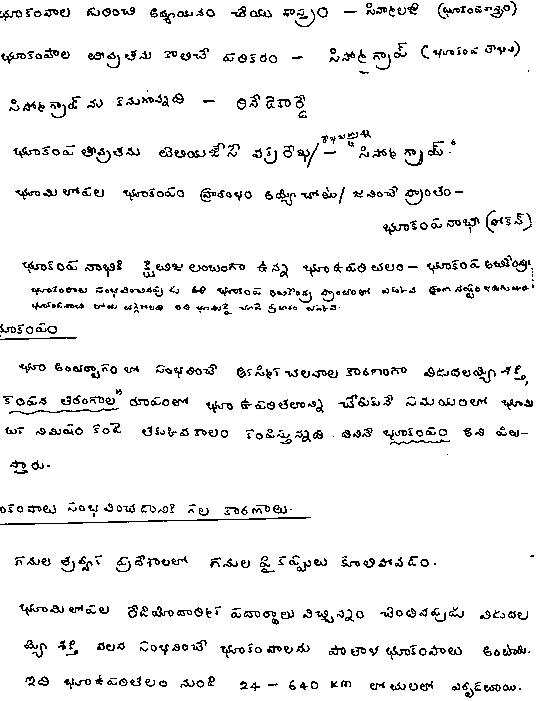 భూకంపాల గురించి అధ్యయనం చేయు శాస్త్రం – సిస్మాలజీ (భూకంపశాస్త్రం)
భూకంపాల తీవ్రతను కొలిచే పరికరం – సిస్మోగ్రాఫ్ (భూకంప లేఖిని)
సిస్మోగ్రాఫ్ ను కనుగొన్నది –
భూకంప తీవ్రతను తెలియజేసే వక్రరేఖ/ – సిస్మోగ్రామ్.
భూమి లోపల భూకంపం ప్రారంభం అయ్యే చోటు/ జనించే ప్రాంతం –
భూకంపనాభి (ఫోకస్)
భూకంప నాభికి క్షితిజ లంబంగా ఉన్న భూఉపరితలం – భూకంప అధికేంద్రం
భూకంపం
భూ అంతర్భాగం లో సంభవించే ఆకస్మిక చలనాల కారణంగా విడుదలయ్యే శక్తి,
కంపన తరంగాల" రూపంలో భూ ఉపరితలాన్ని చేరుకునే సమయంలో భూమి
ఒక నిమిషం కంటే తక్కువ కాలం కంపిస్తున్నది. దీనినే భూకంపం అని పిలు-
స్తారు.
భూకంపాలు సంభవించడానికి గల కారణాలు.
గనుల త్రవ్వక ప్రదేశాలలో గనుల పై కప్పులు కూలిపోవడం.
భూమి లోపల రేడియోధార్మిక పదార్థాలు విచ్ఛిన్నం చెందినప్పుడు విడుదల
య్యే శక్తి వలన సంభవించే భూకంపాలను పాతాళ భూకంపాలు అంటారు.
ఇవి భూఉపరితలం నుండి 24 – 640 km లోతులలో ఏర్పడతాయి.